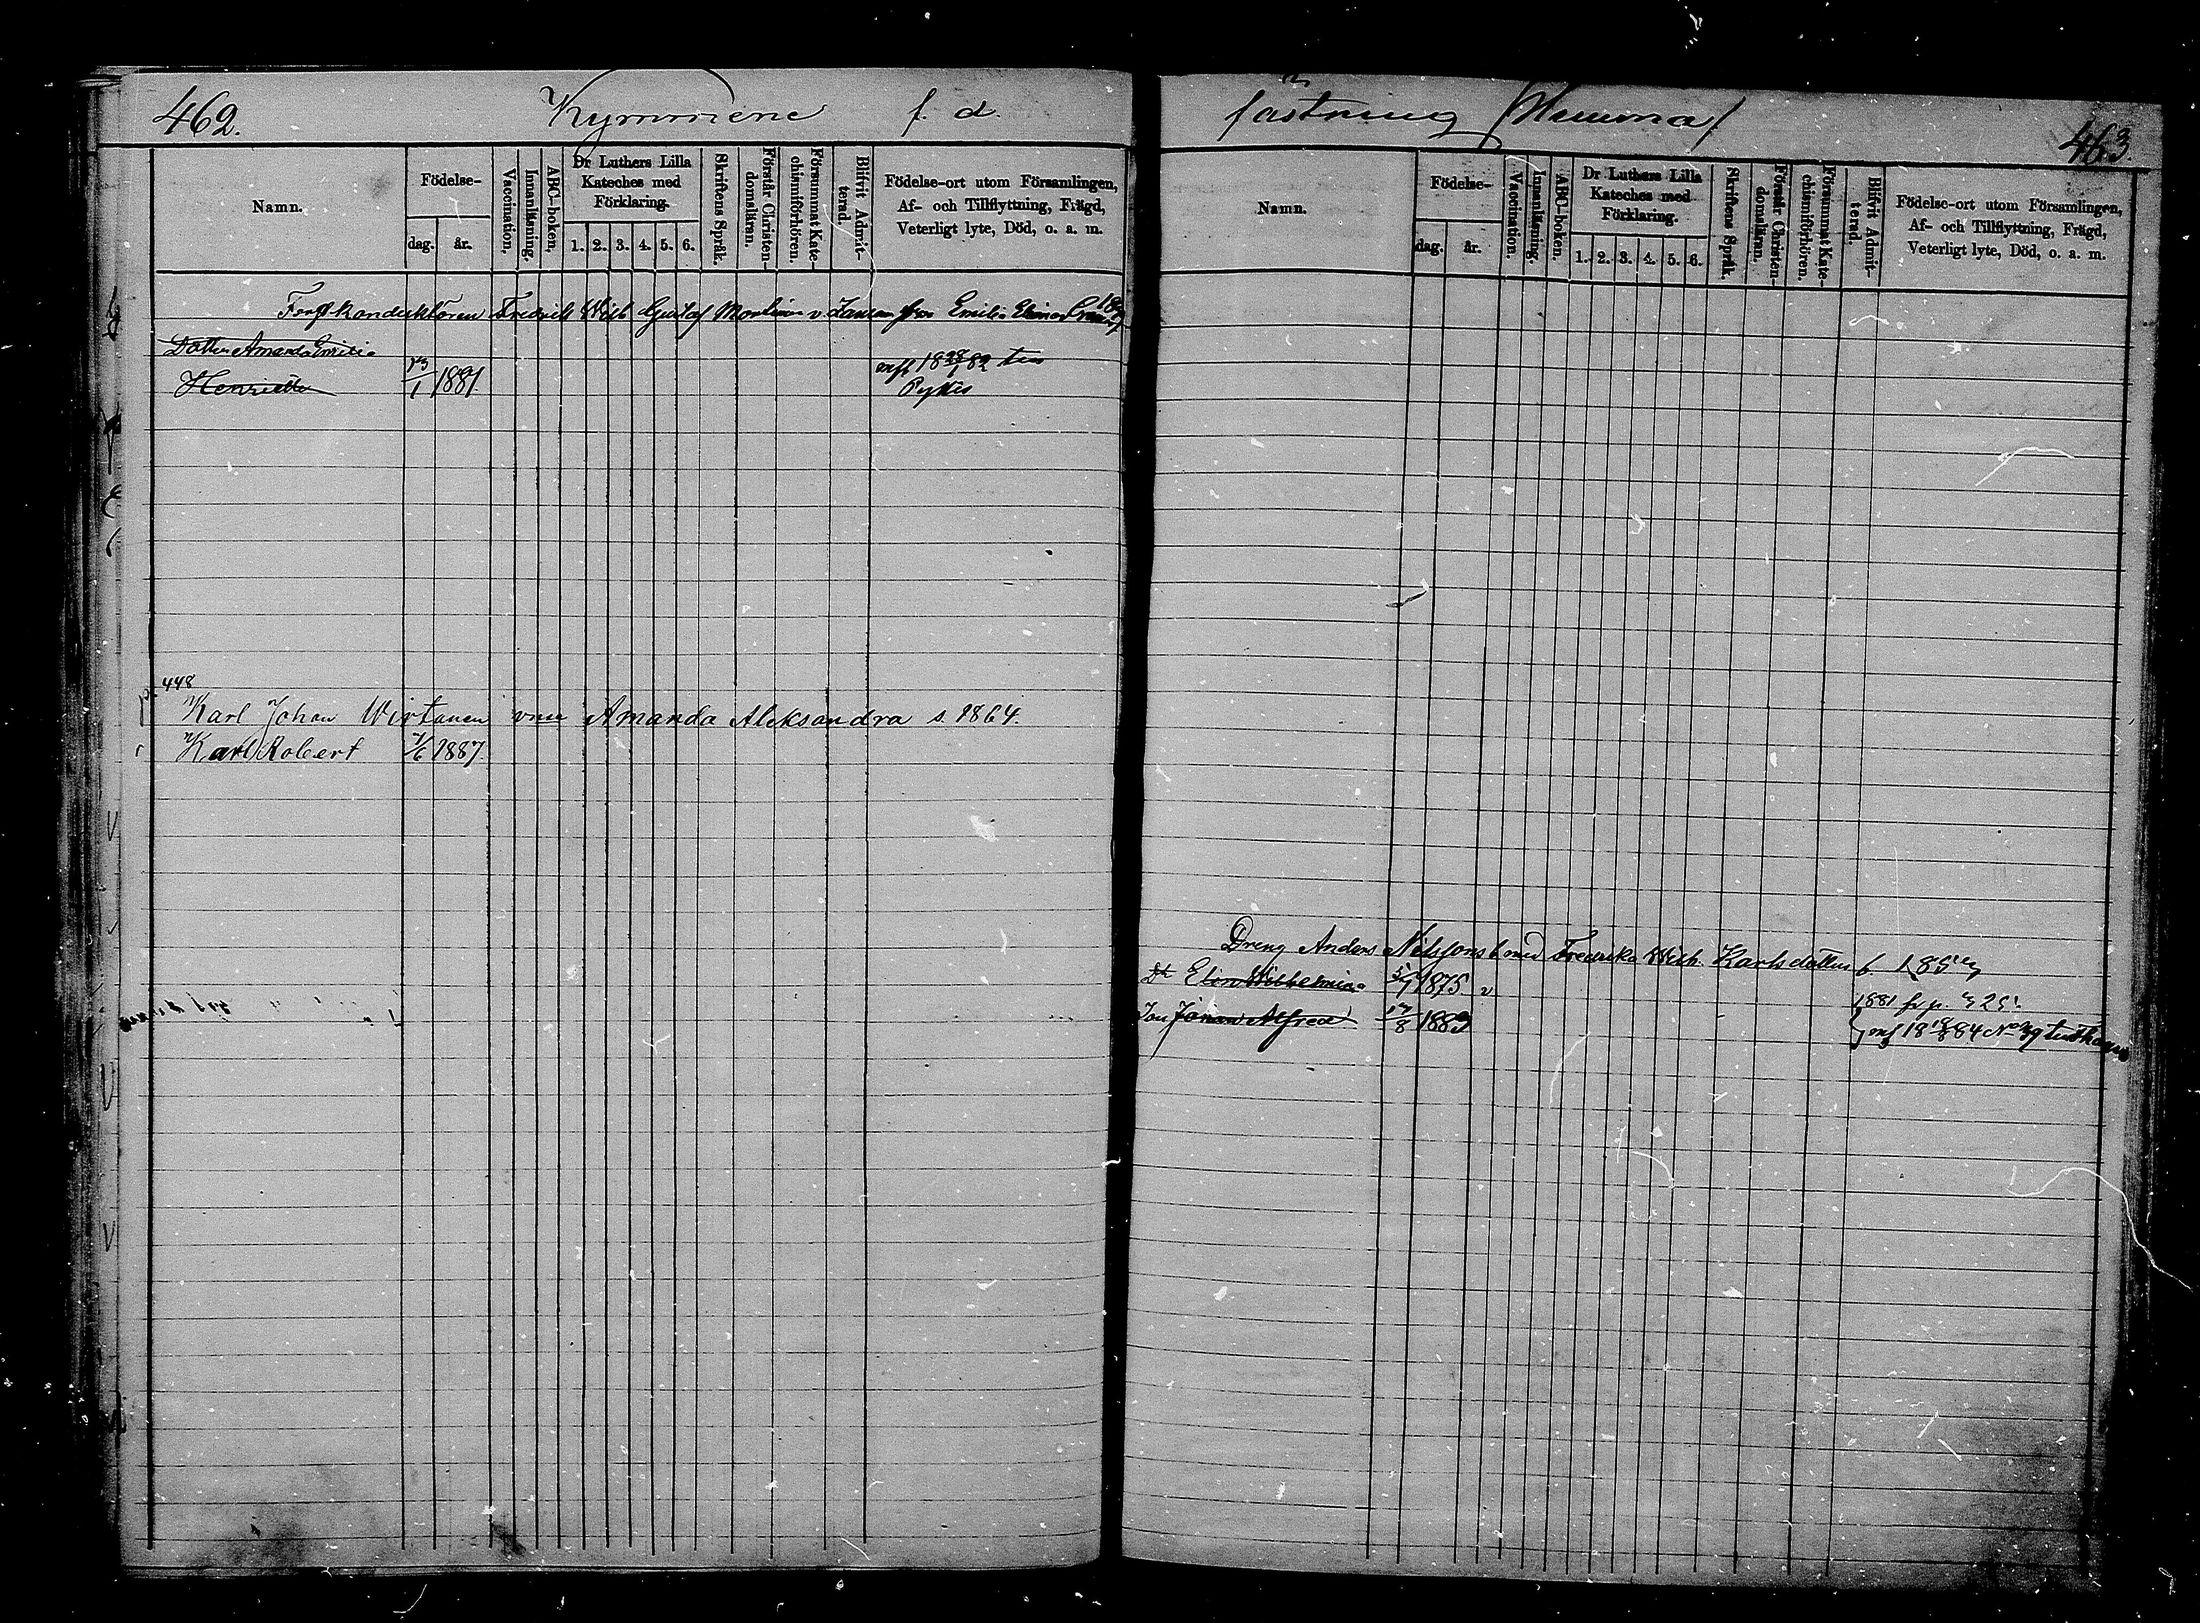 462.
Kymmene f. d.
Namn.
Födelse-
dag.
år.
Vaccination.
Innanläsning.
ABC-boken.
Dr Luthers Lilla
Kateches med
Förklaring.
1. 2. 3. 4. 5. 6.
Skriftens Språk.
Förstår Christen-
domsläran.
Försummat Kate-
chismiförhören.
Blifvit Admit-
terad.
Födelse-ort utom Församlingen,
Af- och Tillflyttning, Frägd,
Veterligt lyte, Död, o. a. m.
Forstkonduktören Fredrik Wilh Gustaf v. Emilie
Dotter Amanda Emilie
Henriette 1881 Pyttis
448
Karl Johan Wirtanen vmo Amanda Aleksandra s. 1864.
Karl Robert 1/6 1887.
fästning
463.
Namn.
Födelse-
dag.
år.
Vaccination.
Innanläsning.
ABC-boken.
Dr Luthers Lilla
Kateches med
Förklaring.
1. 2. 3. 4. 5. 6.
Skriftens Språk.
Förstår Christen-
domsläran.
Försummat Kate-
chismiförhören.
Blifvit Admit-
terad.
Födelse-ort utom Församlingen,
Af- och Tillflyttning, Frägd,
Veterligt lyte, Död, o. a. m.
Dreng Anders Nilssons b med Fredrika Wilh. Karlsdotter f.
Dr Elin Wilhelmina 1875 v 1881
Son Johan Alfred 17/8 1883